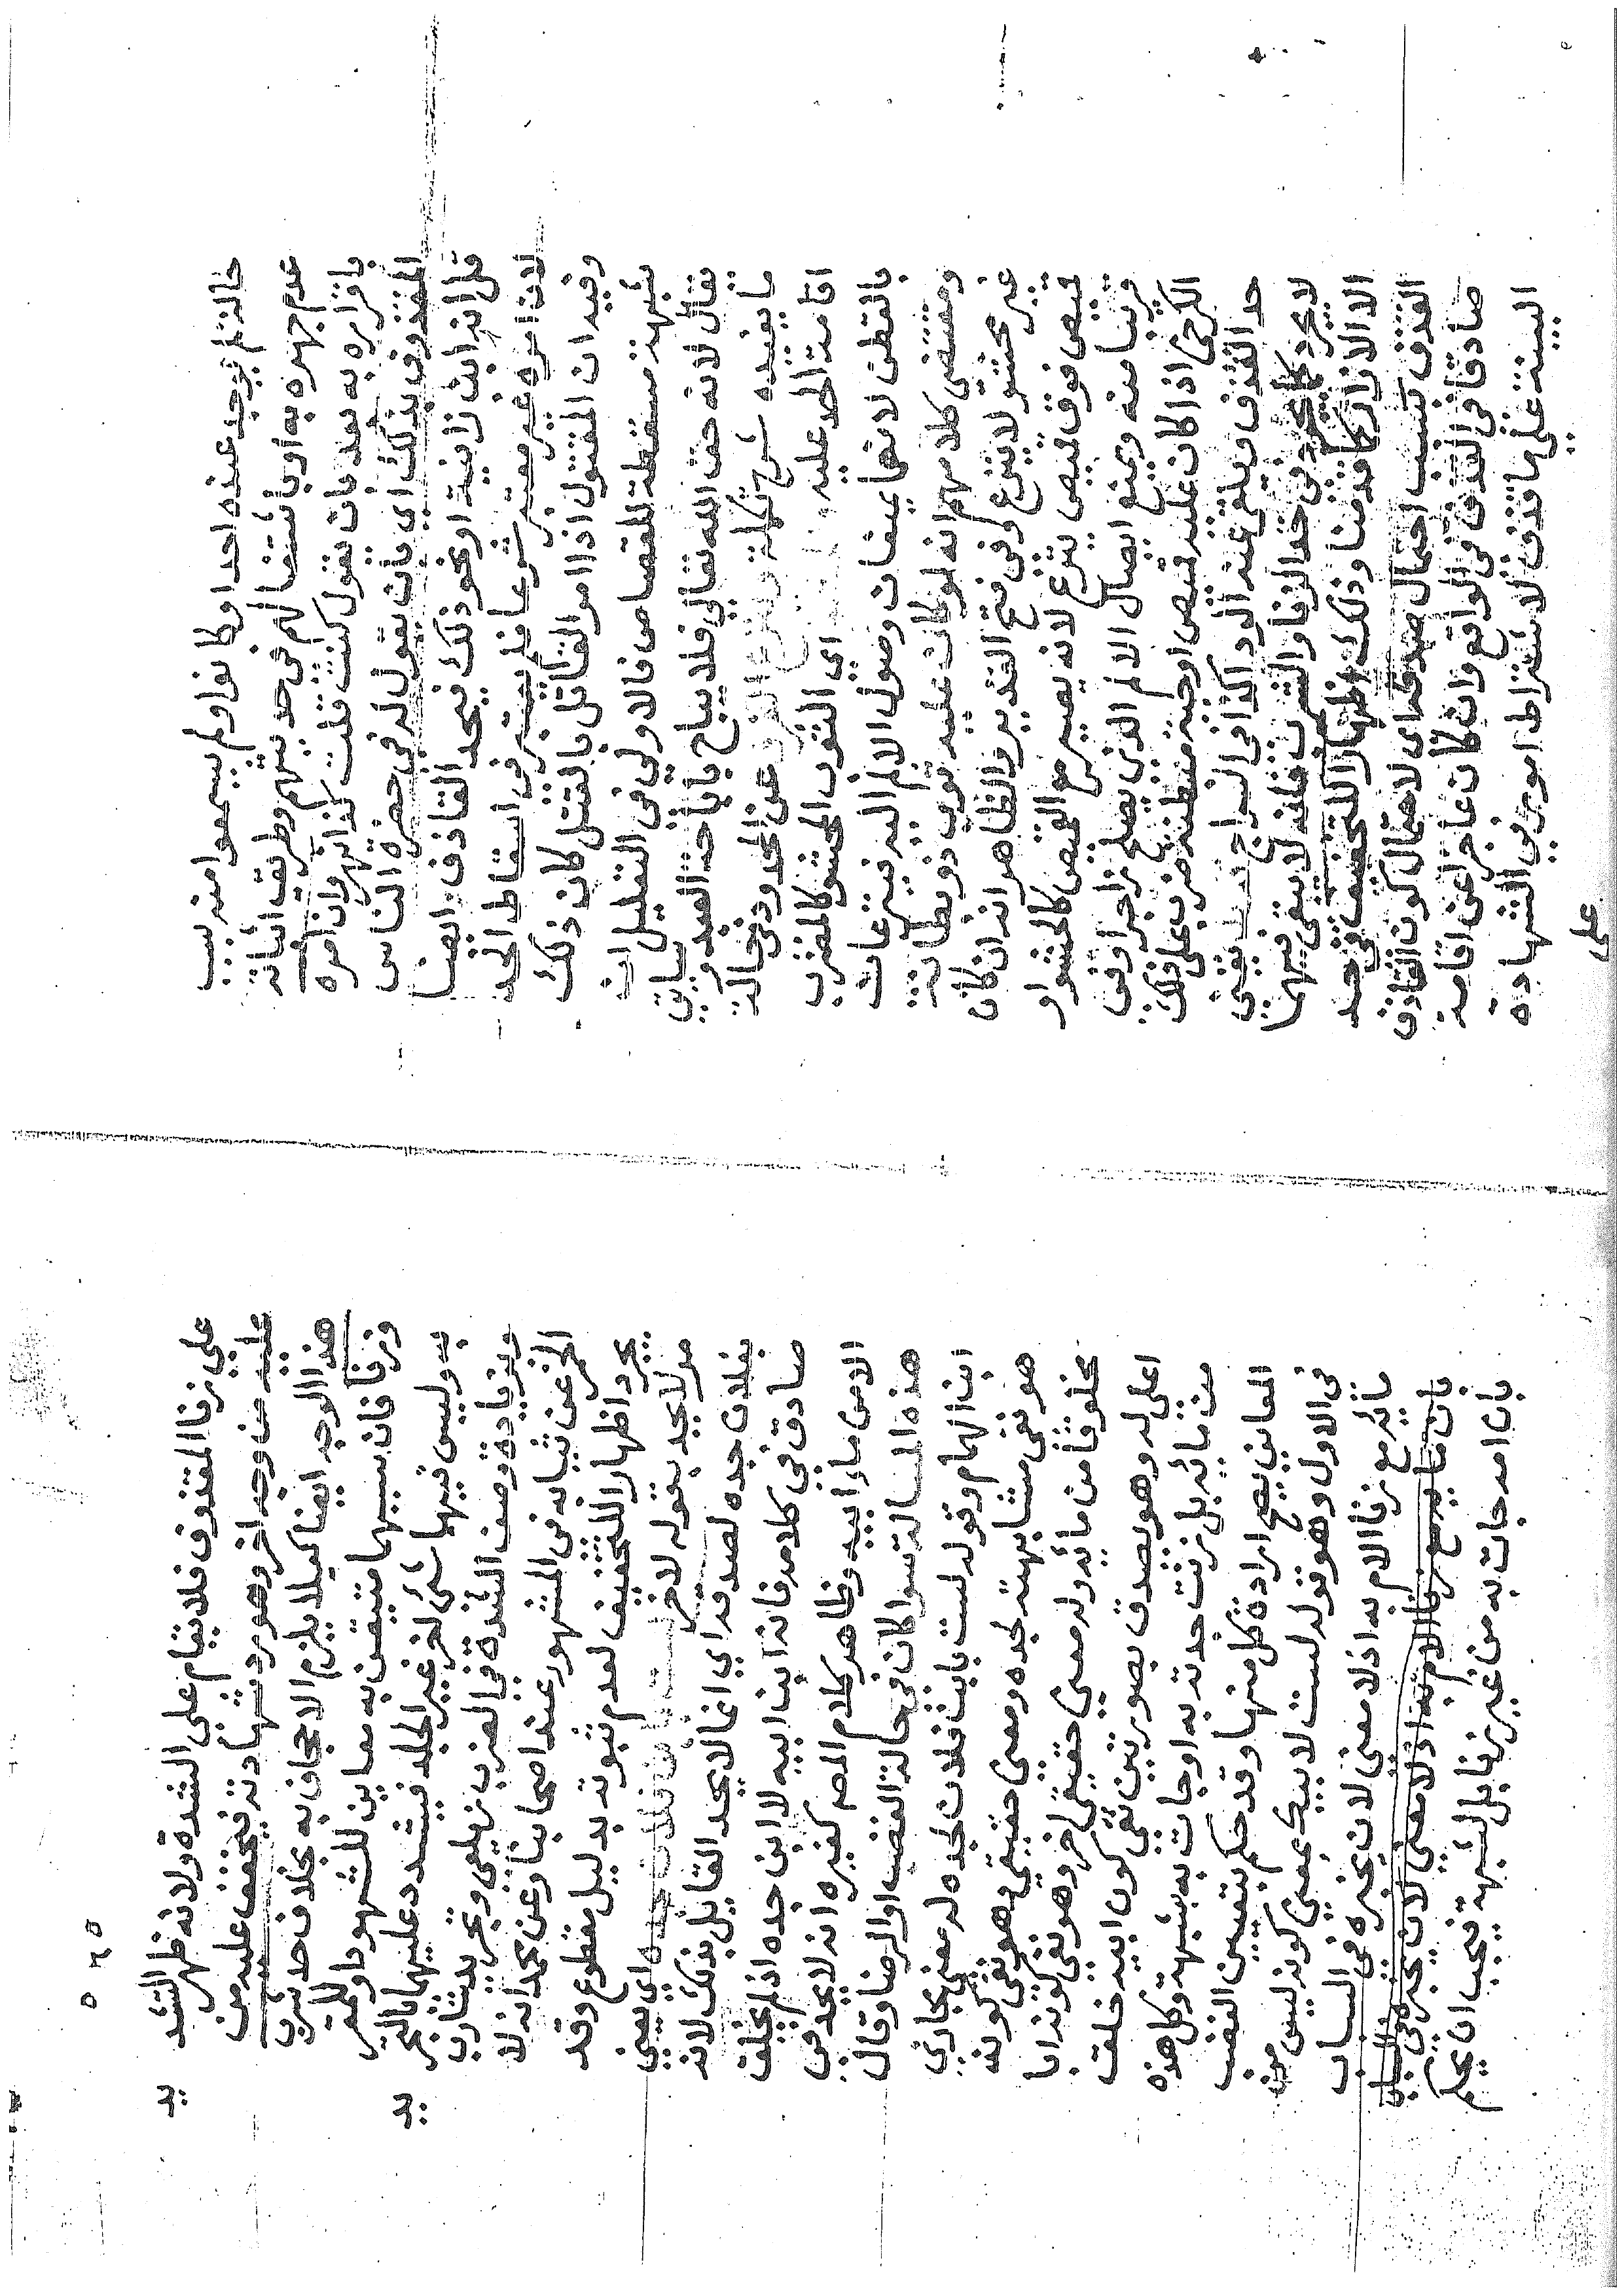 حالة لم يوجد عنده احد او كانوا ولم يسمعوا منه بسبب
عدم جهره به او باشتغالهم في حديثهم وطريق اثباته
باقراره به بعد بان يقول كنت قلت كذا نهر وان امره
المقذوف بذلك اي بان يقول له في حضرة الناس
قل انه ابن زانية او نحو ذلك فيحد القاذف ايضا
لان امره غير معتبر شرعا فلم يعتبر في اسقاط الحد
وفيه ان المقتول اذا امر القاتل بالقتل كان ذلك
شبهة مسقطة للقصاص فالاولي في التعليل ان
يقال لانه حق الله تعالي فلا يباح باباحة العبد وسياتي
ما يفيده شرح تكملة ونزع الفرو عن المحدود في حالة
اقامة الحد عليه اي الثوب المحشو كالمضرب
بالقطن لانهما يمنعان وصول الالم اليه فينزعان
ومقتضي كلامهم انه لو كان عليه ثوب ذو بطانة
غير محشو لا ينزع وفي فتح القدير والظاهر انه ان كان
قميص فوق قميص ينزع لانه يصير مع القميص كالمحشو او
قريبا منه ويمنع ايصال الالم الذي يصلح زاجرا وفي
الكرخي اذا كان عليه قميص او جبة مبطنة ضرب علي ذلك
حد القذف ويلقي عنه الرداء كذا في السراج يعني
لا يجرد كما يجرد في حد الزنا والشرب فانه لا يبقي فيهما
الا الازار كما قدمنا وذلك اظهارا للتخفيف في حد
القذف بسبب احتمال صدقه اي لاحتمال كون القاذف
صادقا في القذف في الواقع وان كان عاجزا عن اقامة
البينة علي ما قذف لاشتراط امور في الشهادة
علي
علي زنا المقذوف فلا يقام علي الشدة ولانه ظهر التشديد
عليه من وجه اخر وهو رد شهادته فيخفف عليه من
هذا الوجه ايضا كيلا يلزم الاجحاف به بخلاف حد شرب
وزنا فان سببهما متيقن به معاين للشهود او للمقر
به وليس فيهما شئ اخر غير الجلد فيشدد عليهما بالتجريد
وبزيادة وصف الشدة في الضرب زيلعي وتجريد شارب
الخمر عن ثيابه في المشهور عند اصحابنا وعن محمد انه لا
يجرد اظهارا للتخفيف لعدم ثبوته بدليل مقطوع وقد
مر لا يحد بقوله لاخر لست بابن فلان جده اي يعني
بفلان جده لصدقه اي انما لا يحد القايل بذلك لانه
صادق في كلامه فانه ابن ابيه لا ابن جده اذ لم يخلق
الا من ماء ابيه وظاهر كلام المصـ كغيره انه لا يحد في
هذه المسالة سوا كان في حالة الغضب او الرضا وقال
ابن الهمام وقوله لست بابن فلان لجده له معني مجازي
هو نفي مشابهته لجده ومعني حقيقي وهو نفي كونه
مخلوقا من مائه وله معني حقيقي اخر وهو نفي كونه ابا
اعلي له وهو يصدق بصورتين نفي كون ابيه خلق
من مائه بل زنت جدته به او جات به بشبهة وكل هذه
المعاني يصح ارادة كل منها وقد حكم بتعيين الغضب
في الاول وهو قوله لست لابيك بمعني كونه ليس من
مائه مع زنا الام به اذ لا معني لان يخبره في السباب
بان مائه مع زنا الام به اذ لا معني لان يخبره في السباب
بان امه جات به من غير زنا بل بشبهة فيجب ان يحكم